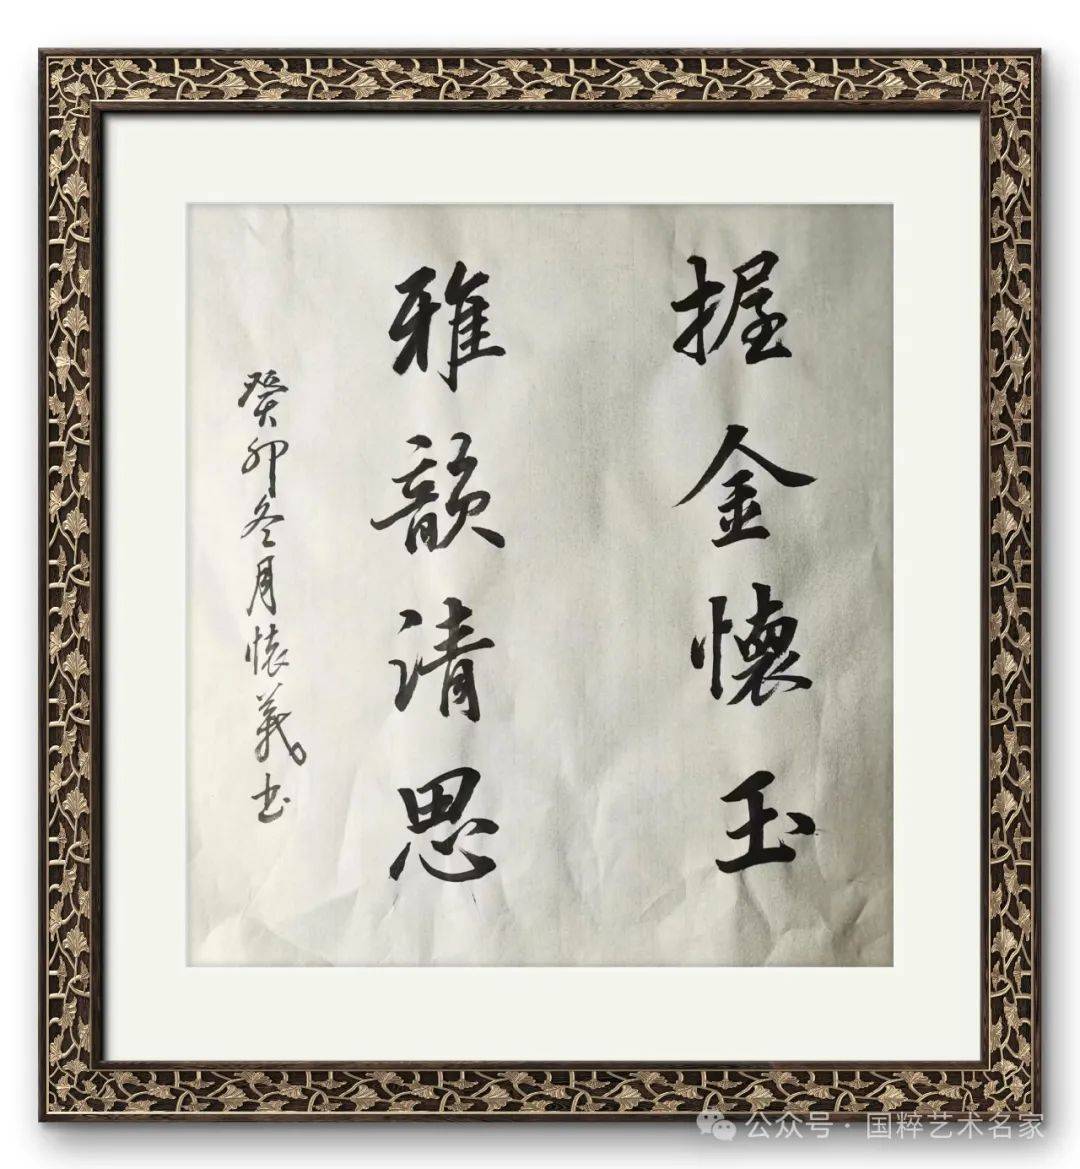 握金懷玉
雅韻清思
癸卯冬月懷義书
公众号 · 国粹艺术名家